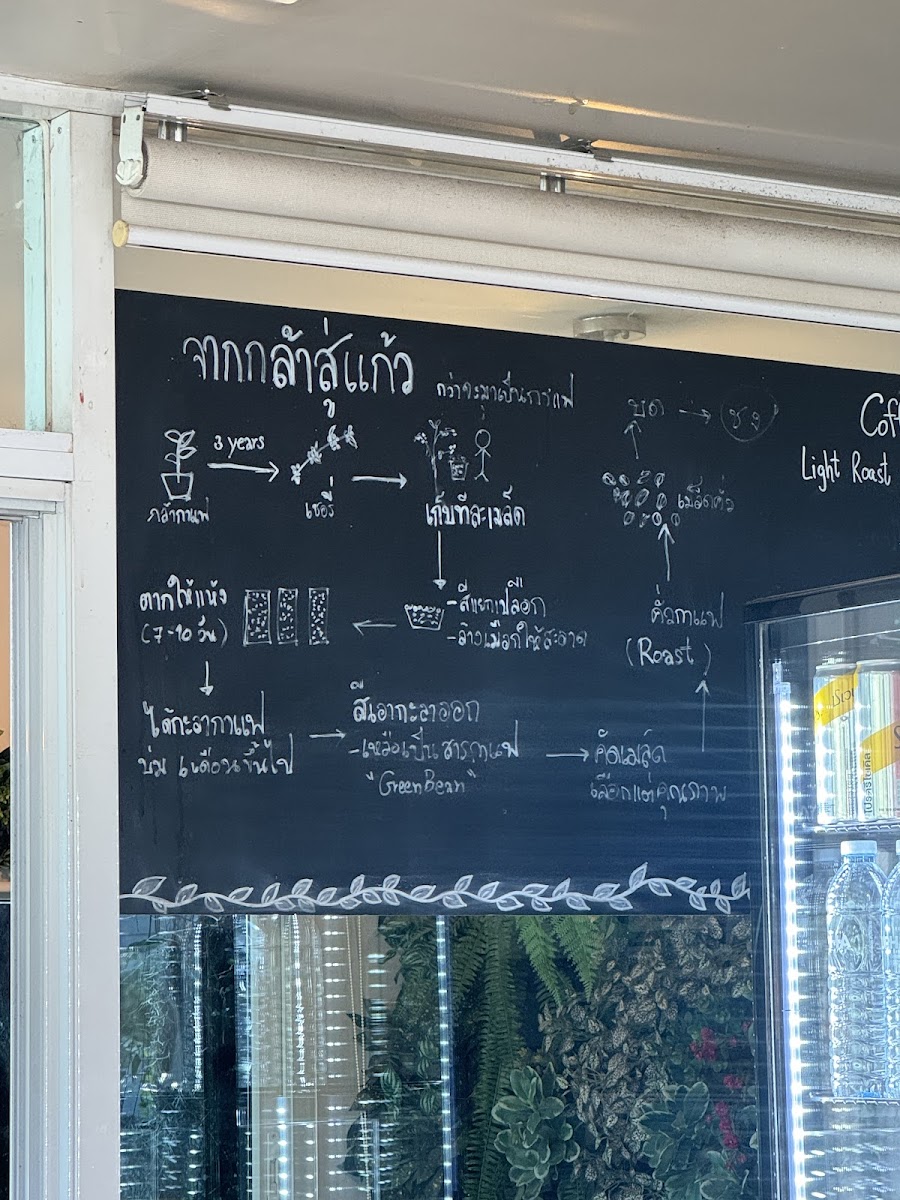 จากกล้าสู่แก้ว
กว่าจะมาเป็นกาแฟ
3 years
กล้ากาแฟ
เชอรี่
เก็บทีละเมล็ด
- สีแยกเปลือก
- ล้างเมือกให้สะอาด
ตากให้แห้ง
(7-10 วัน)
ได้กะลากาแฟ
บ่ม 6 เดือนขึ้นไป
สีเอากะลาออก
- เหลือเป็นสารกาแฟ
"GreenBean"
คัดเมล็ด
เลือกแต่คุณภาพ
คั่วกาแฟ
(Roast)
เมล็ดคั่ว
บด → ชง
Coff
Light Roast